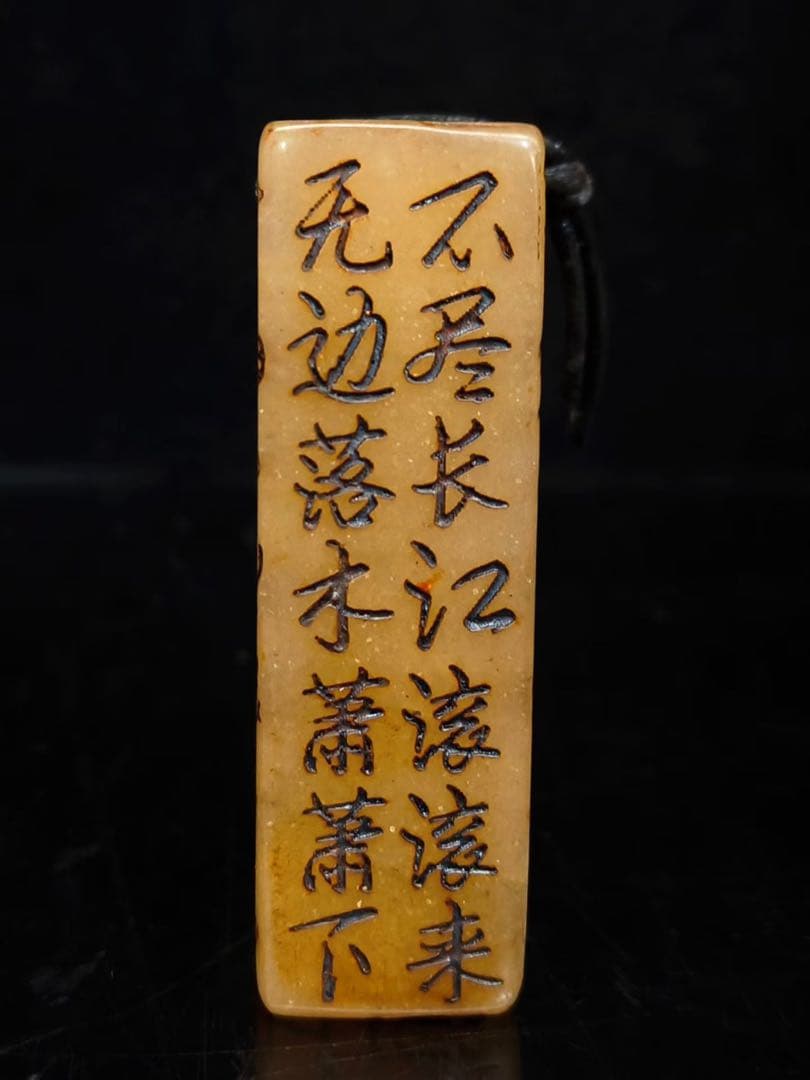 无边落木萧萧下
不尽长江滚滚来